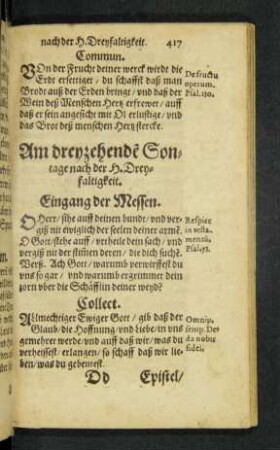 nach der H. Dreyfaltigkeit. 417
Commun.
VOn der Frucht deiner werck wirdt die
Erdt ersettiget / du schaffst daß man
Brodt auß der Erden bringt / vnd daß der
Wein deß Menschen Hertz erfrewet / auff
daß er sein angesicht mit Ol erlustige / vnd
das Brot deß menschen Hertz stercke.
De fructu
operum.
Psal. 130.
Am dreyzehendē Son-
tage nach der H. Drey-
faltigkeit.
Eingang der Messen.
O Herr / sihe auff deinen bundt / vnd ver-
giß nit ewiglich der seelen deiner armē.
O Gott / stehe auff / vrtheile dein sach / vnd
vergiß nit der stimen deren / die dich suchē.
Verß. Ach Gott / warumb verwirffest du
vns so gar / vnd warumb ergrimmet dein
zorn vber die Schäfflin deiner weyd?
Respice
in testa-
mentū.
Psal. 73.
Collect.
ALlmechtiger Ewiger Gott / gib daß der
Glaub / die Hoffnung / vnd liebe / in vns
gemehrer werde / vnd auff daß wir / was du
verheissest / erlangen / so schaff daß wir lie-
ben / was du gebeutest.
Omnip.
semp. De⸗
da nobis
fidei.
Dd Epistel /